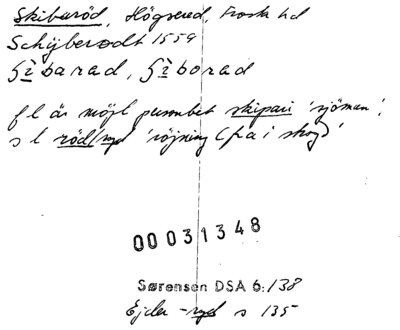 Skibaröd, Högsered, Frosta hd
Schÿberodt 1559
ʃìbarad, ʃìborad
f l är möjl personbet skipari 'sjöman',
s l röd/ryd 'röjning (på i skog)'
00031348
Sørensen DSA 6:138
Ejder -ryd s 135